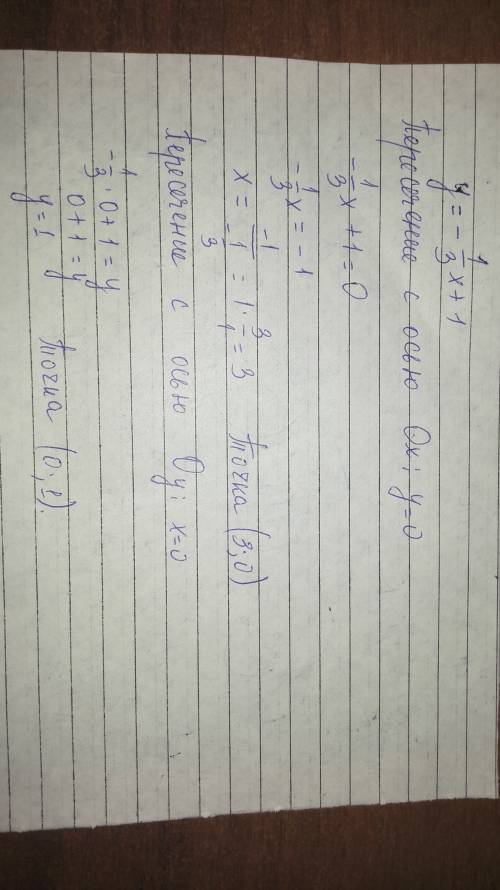 y = -1/3 x + 1
Пересечение с осью Ox: y=0
-1/3 x + 1 = 0
-1/3 x = -1
x = -1/(-1/3) = 1 · 3/1 = 3 Точка (3;0)
Пересечение с осью Oy: x=0
-1/3 · 0 + 1 = y
0 + 1 = y
y = 1 Точка (0;1).